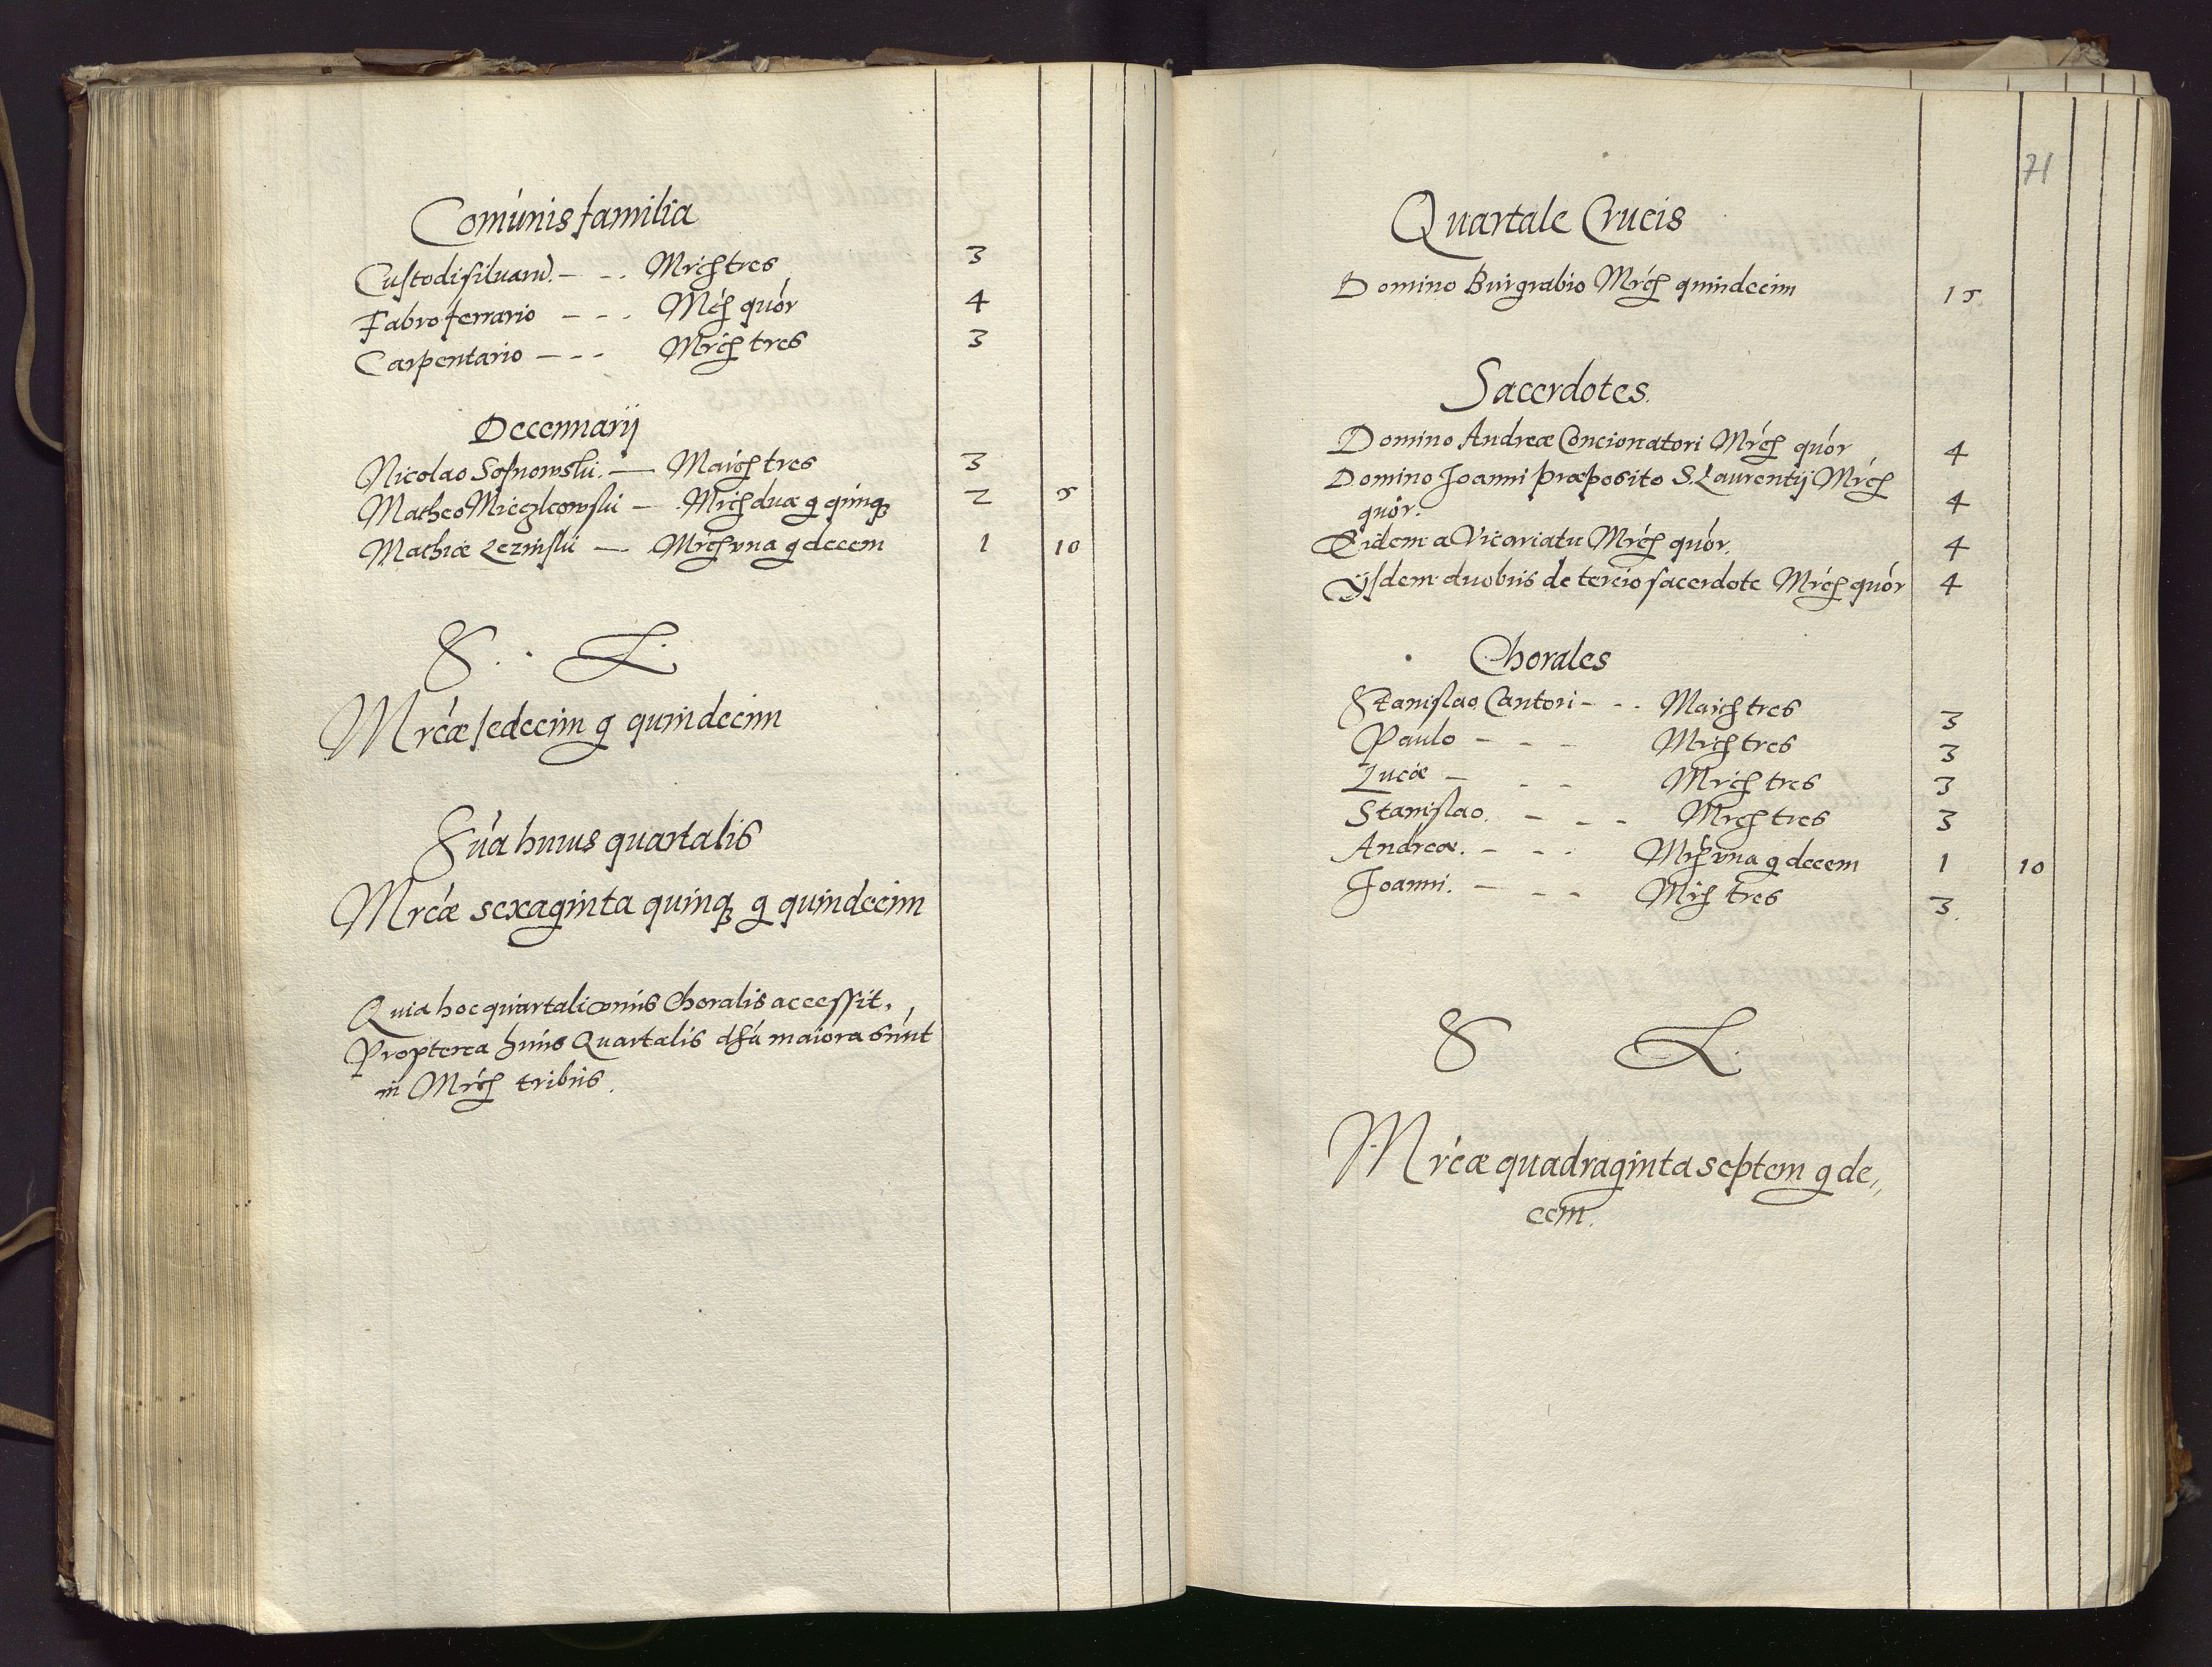 Comunis familia
Custodi siluarũ. - - . Mrcis tres 3
Fabro ferrario - - . Mrcis quor 4
Carpentario - - - Mrcis tres 3
Decennarij
Nicolao Sosnowski. — Marcis tres 3
Matheo Mieczkowski — Mrcis duæ g quinq; 2 5
Mathiæ — Mrcis vna g decem 1 10
S. . L.
Mrcæ sedecim g quindecim
Sũa huius quartalis
Mrcæ sexaginta quinq; g quindecim
Quia hoc quartali vnus Choralis accessit,
Propterea huius Quartalis maiora sunt
in Mrcis tribus.
71
Quartale Crucis
Domino Burgrabio Mrcis quindecim 15
Sacerdotes.
Domino Andreæ Concionatori Mrcis quor 4
Domino Joanni præposito S. Laurentij Mrcis
quor. 4
Eidem a Vicariatu Mrcis quor. 4
Ijsdem duobus de tercio sacerdote Mrcis quor 4
Chorales
Stanislao Cantori - - . Marcis tres 3
Paulo - - - Mrcis tres 3
Lucæ - - - Mrcis tres 3
Stanislao. - - - Mrcis tres 3
Andreæ. - - - Mrcis vna g decem 1 10
Joanni. - - - Mrcis tres 3.
S L.
Mrcæ quadraginta septem g de,,
cem.